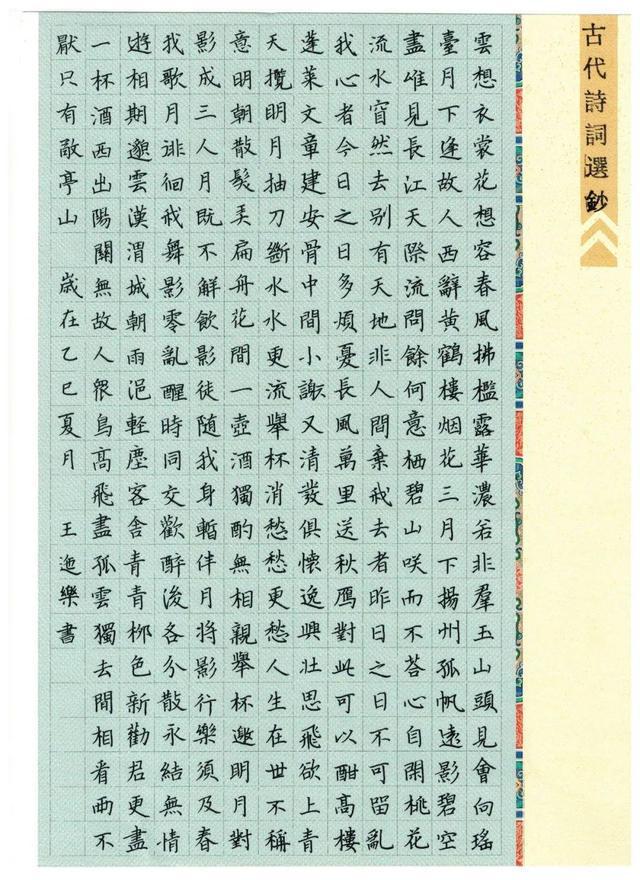 古代詩詞選鈔
雲想衣裳花想容春風拂檻露華濃若非羣玉山頭見會向瑤
臺月下逢故人西辭黃鶴樓烟花三月下揚州孤帆遠影碧空
盡唯見長江天際流問餘何意栖碧山咲而不答心自閑桃花
流水窅然去别有天地非人間棄我去者昨日之日不可留亂
我心者今日之日多煩憂長風萬里送秋鴈對此可以酣高樓
蓬萊文章建安骨中間小謝又清發俱懷逸興壯思飛欲上青
天攬明月抽刀斷水水更流舉杯消愁愁更愁人生在世不稱
意明朝散髮弄扁舟花間一壺酒獨酌無相親舉杯邀明月對
影成三人月既不解飲影徒随我身暫伴月將影行樂須及春
我歌月徘徊我舞影零亂醒時同交歡醉後各分散永結無情
遊相期邈雲漢渭城朝雨浥輕塵客舍青青柳色新勸君更盡
一杯酒西出陽關無故人衆鳥高飛盡孤雲獨去間相看兩不
厭只有敬亭山 歲在乙巳夏月 王迤樂書